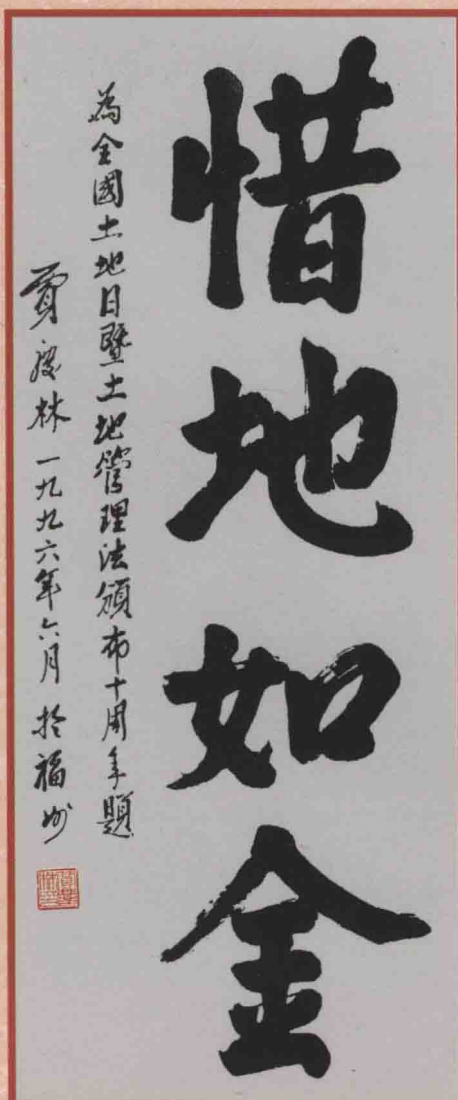 惜地如金
為全國土地日暨土地管理法頒布十周年題
賈慶林一九九六年六月於福州